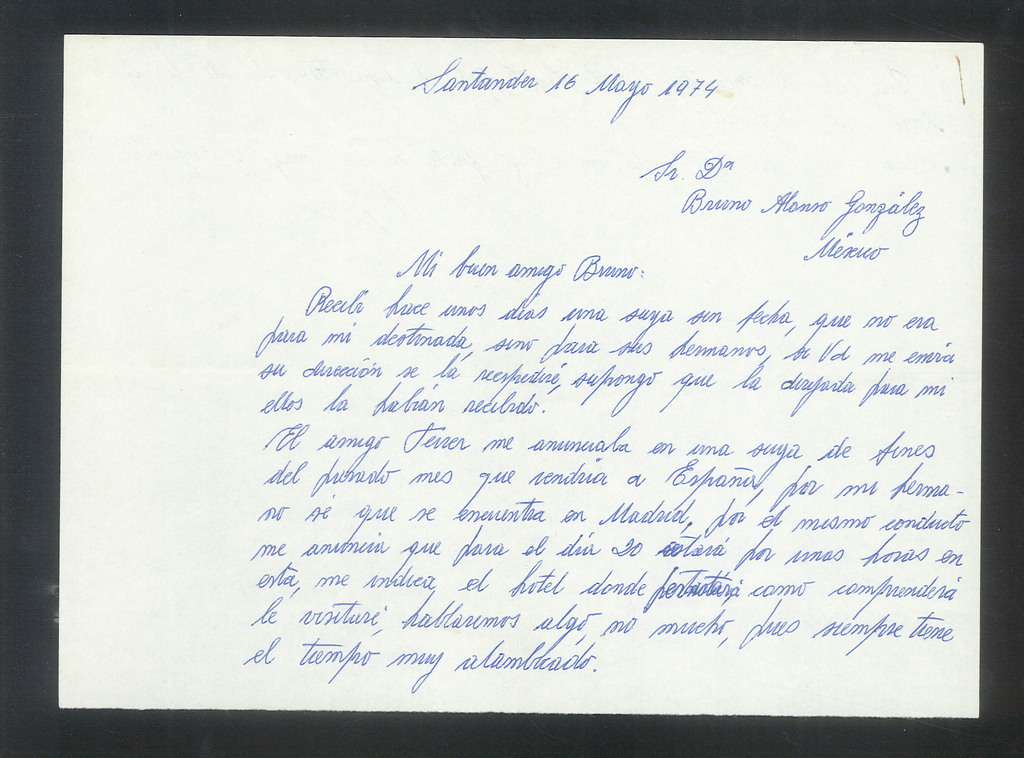 Santander 16 Mayo 1974
Sr. Dn
Bruno Alonso González
México
Mi buen amigo Bruno:
Recibí hace unos días una suya sin fecha, que no era
para mi destinada, sino para sus hermanos, si Vd me envia
su dirección se la reespediré, supongo que la dirijada para mi
ellos la habrán recibido.
El amigo Ferrer me anunciaba en una suya de fines
del pasado mes que vendria a España, por mi herma-
no sé que se encuentra en Madrid, por el mismo conducto
me anuncia que para el día 20 estará por unas horas en
esta, me indica, el hotel donde pernotará, como comprenderá
le visitaré, hablaremos algo, no mucho, pues siempre tiene
el tiempo muy alambicado.